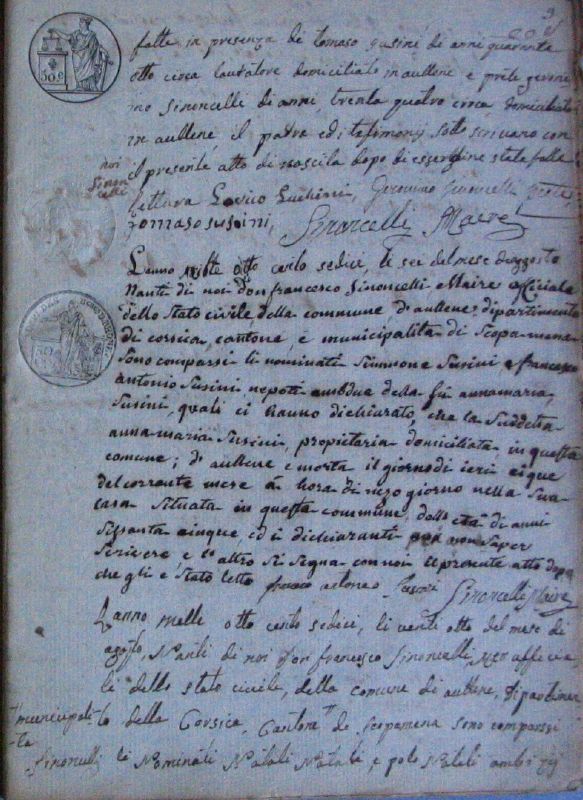 fatte in presenza di tomaso susini di anni quaranta
otto circa lauratore domiciliato in aullene e prete geroni
mo Sinoncelli di anni, trenta quatro circa domiciliato
in aullene, il padre ed i testimonij sotto scrivano con
il presente atto di nascita dopo di essergline stata fatta
lettura Lovico Luchini, Geronimo Sinoncelli prete
Tomaso susini, Sinoncelli Maire
noi
Sinon
celli
50 c
L'anno mille otto cento sedici, li sei del mese di aggosto
Nanti di noi don francesco Sinoncelli Maire officiale
dello Stato civile della commune d'aullene dipartimento
di corsica, cantone, e municipalita di Scopamena
Sono comparsi li nominati Simmone Susini e francesco
antonio Susini nepoti ambdue della fù annamaria
Susini, quali ci hanno dichiarato, che la Suddetta
anna maria Susini, propietaria domiciliata in questa
comune; d'aullene e morta il giorno di ieri cique
del corrente mese à hora di mezo giorno nella Sua
casa Situata in questa commune, dell'età di anni
Sissanta cinque, ed i dichiaranti non Saper
Scrivere, e l'altro Si Segna con noi il presente atto dopo
che gli e Stato letto Sinoncelli Maire
L'anno mille otto cento sedici, li venti otto del mese di
agosto, Nanti di noi Don francesco Sinoncelli, Mer ufficia
le dello stato civile, della comune di aullene, dipartimen
to della Corsica, Cantone di Scopamena sono comparssi
municipali
ta
Sinoncelli
li Nominati Natali e polo Natali ambi